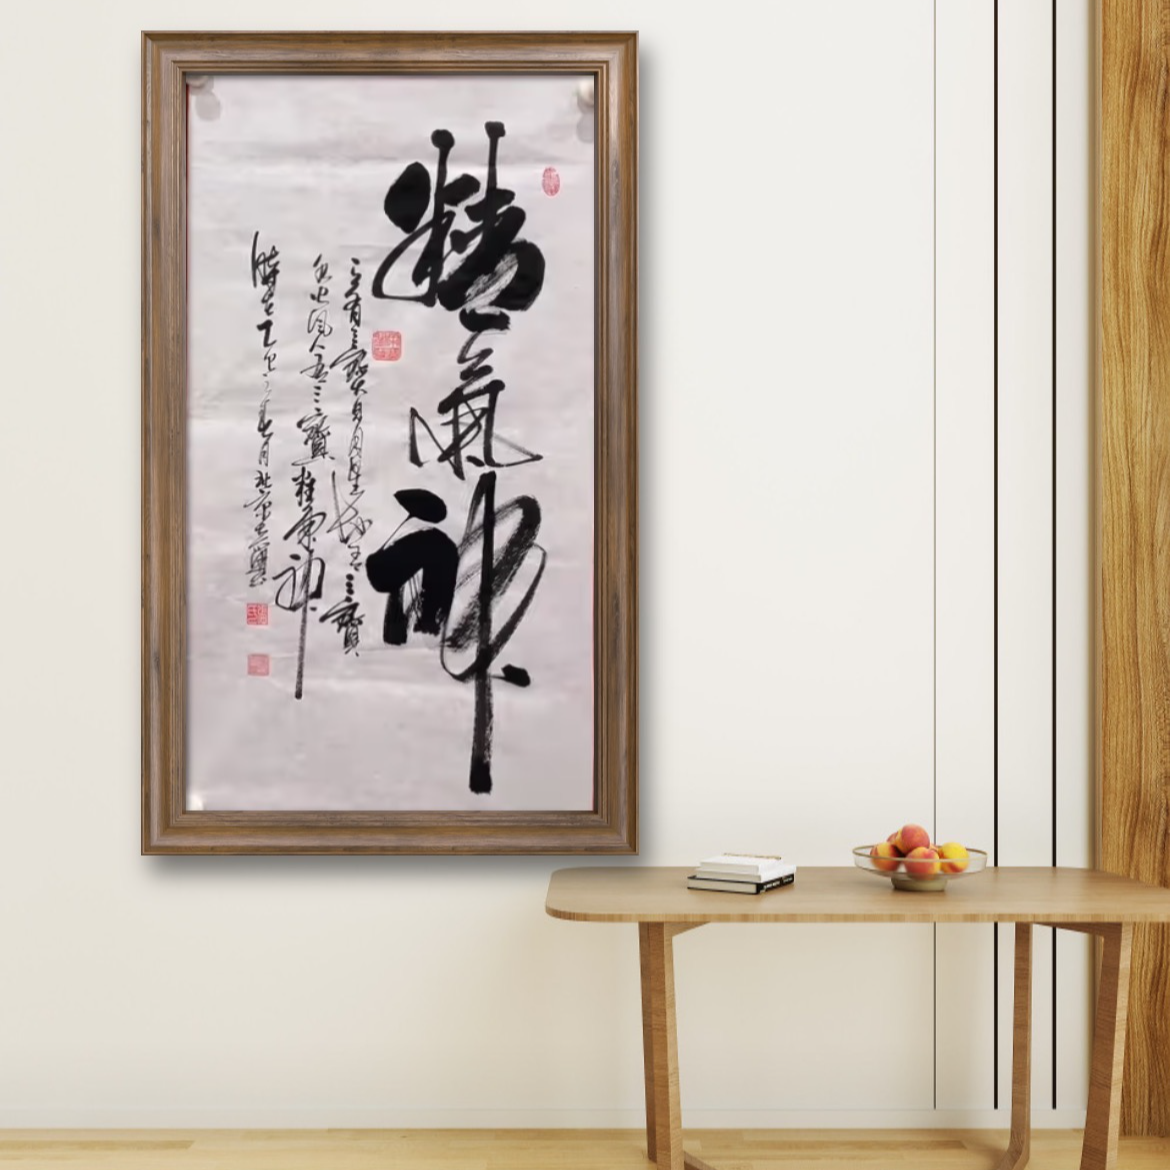 精氣神
天有三寶日月星地有三寶
水火风人有三寶精氣神
時在乙巳之春月北京